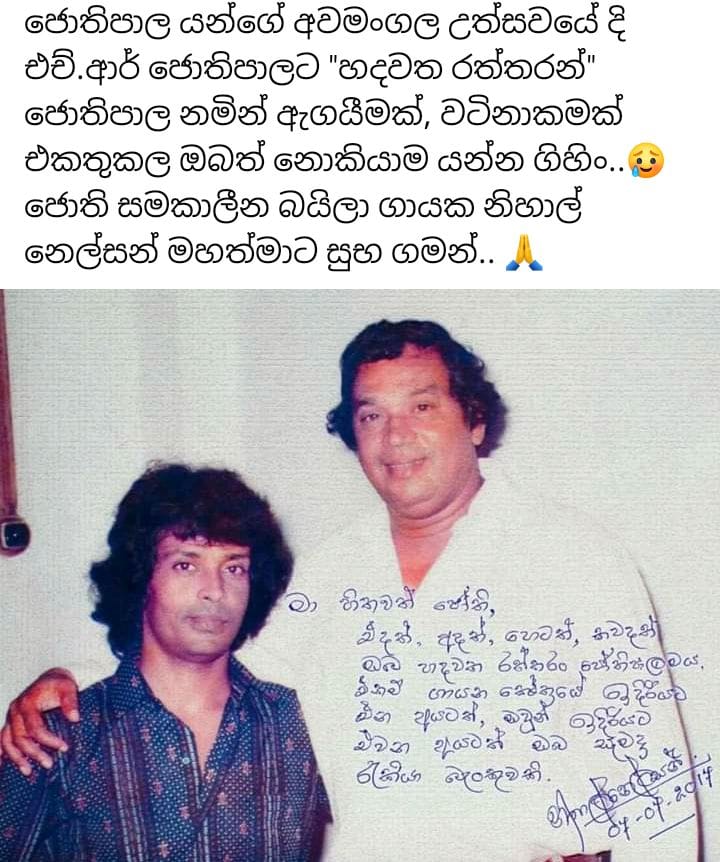 ජොතිපාල යන්ගේ අවමංගල උත්සවයේ දි
එච්.ආර් ජොතිපාලට "හදවත රත්තරන්"
ජොතිපාල නමින් ඇගයීමක්, වටිනාකමක්
එකතුකල ඔබත් නොකියාම යන්න ගිහිං..🥲
ජොති සමකාලීන බයිලා ගායක නිහාල්
නෙල්සන් මහත්මාට සුභ ගමන්.. 🙏
මා හිතවත් ජෝති,
එදත්, අදත්, හෙටත්, කවදත්
ඔබ හදවත රත්තරං ජෝතිපාලමය.
ගායන ක්ෂේත්‍රයේ ඉදිරියට
එන අයටත්, ඔවුන් ඉදිරියට
එවන අයටත් ඔබ සැමදා
රැකියා බැංකුවකි.
නිහාල් නෙල්සන්
07-07-2017